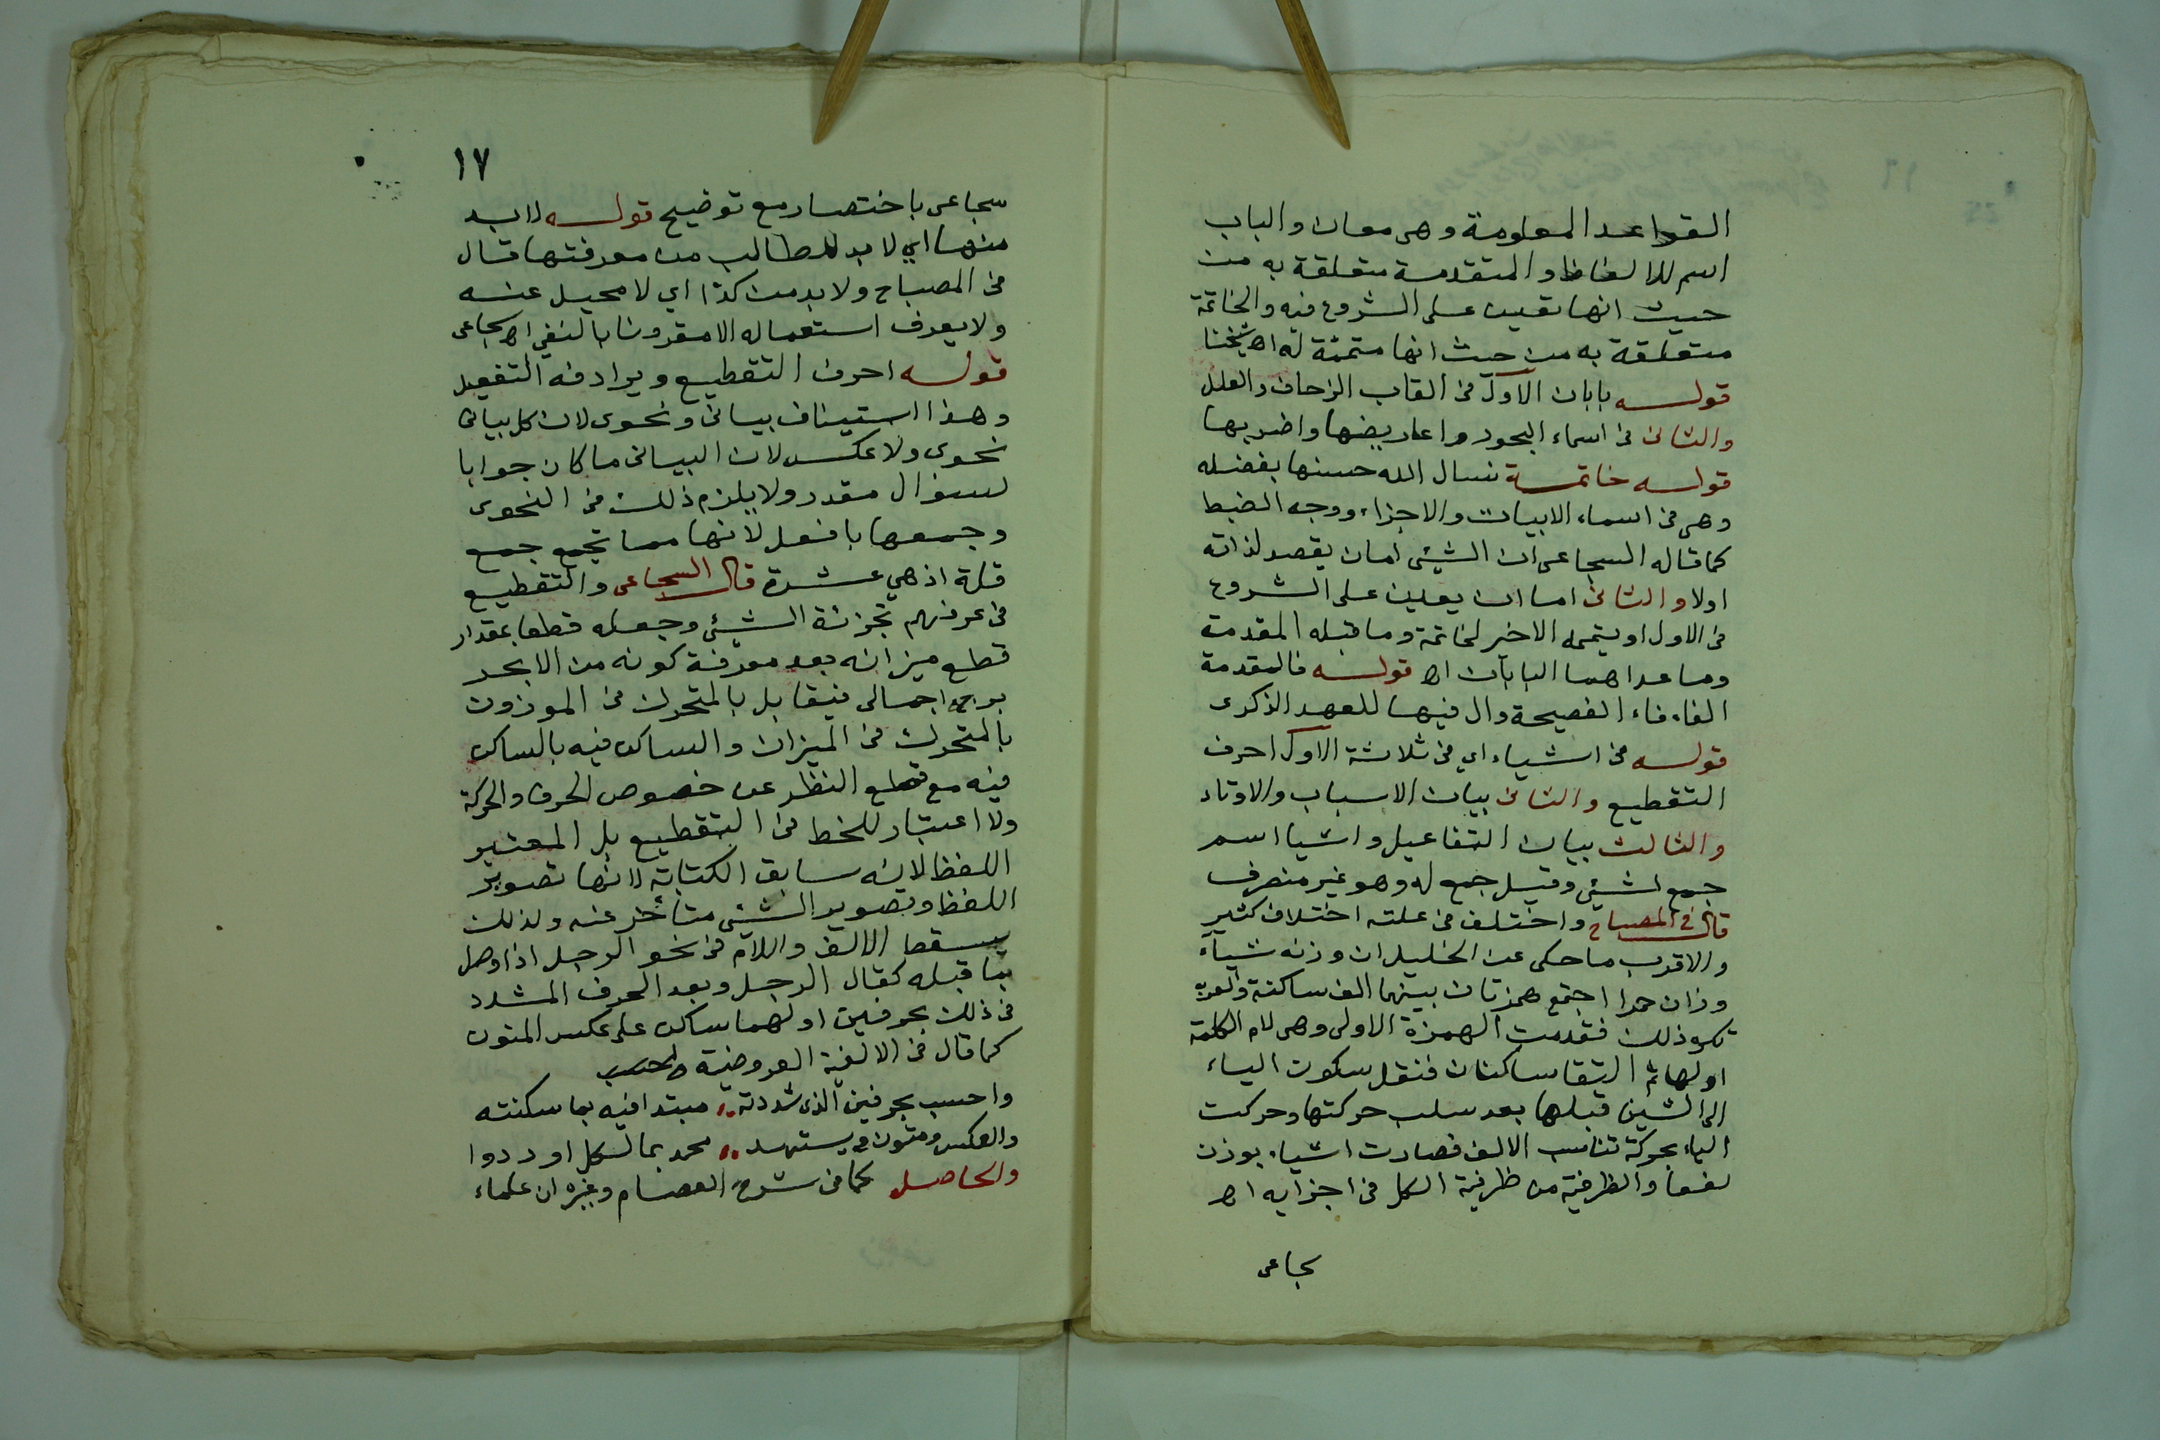 القواعد المعلومة وهى معان والباب
اسم للالفاظ والمتقدمة متعلقة به من
حيث انها تعين على الشروع فيه والخاتمة
متعلقة به من حيث انها متممة له اه شيخنا
قوله بابان الاول فى القاب الزحاف والعلل
والثانى فى اسماء البحور واعاريضها واضربها
قوله خاتمة نسال الله حسنها بفضله
وهى فى اسماء الابيات والاجزاء ووجه الضبط
كما قاله السجاعى ان الشيئ اما ان يقصد لذاته
اولا والثانى اما ان يعين على الشروع
فى الاول او يتممه الاخير لخاتمة وما قبله المقدمة
وما عداهما البابان اه قوله فالمقدمة
الفاء فاء الفصيحة وال فيها للعهد الذكرى
قوله فى اشياء اي فى ثلاثة الاول احرف
التقطيع والثانى بيان الاسباب والاوتاد
والثالث بيان التفاعيل واشيا اسم
جمع لشيئ وقيل جمع له وهو غير منصرف
قال فى المصباح واختلف فى علته اختلاف كثير
والاقرب ما حكى عن الخليل ان وزنه شيآء
وزان حمرا اجتمع همزتان بينهما الف ساكنة والعرب
تكره ذلك فقدمت الهمزة الاولى وهى لام الكلمة
اولها ثم التقا ساكنان فنقل سكون الياء
الى الشين قبلها بعد سلب حركتها وحركت
الياء بحركة تناسب الالف فصارت اشياء بوزن
لفعا والظرفية من ظرفية الكل فى اجزايه اه
سجاعى
١٧
سجاعى باختصار مع توضيح قوله لا بد
منها اي لا بد للطالب من معرفتها قال
فى المصباح ولا بد من كذا اي لا محيل عنه
ولا يعرف استعماله الا مقرونا بالنفى اه سجاعى
قوله احرف التقطيع ويرادفه التفعيل
وهذا استيناف بيانى ونحوى لان كل بيانى
نحوى ولا عكس لان البيانى ما كان جوابا
لسؤال مقدر ولا يلزم ذلك فى النحوى
وجمعها بافعل لانها مما تجمع جمع
قلة اذ هي عشرة قال السجاعى والتقطيع
فى عرفهم تجزئة الشيئ وجعله قطعا بمقدار
قطع ميزانه بعد معرفة كونه من الابحر
بوجه اجمالى فيقابل بالمتحرك فى الموزون
بالمتحرك فى الميزان والساكن فيه بالساكن
فيه مع قطع النظر عن خصوص الحرف والحركة
ولا اعتبار للخط فى التقطيع بل المعتبر
اللفظ لانه سابق الكتابة لانها تصوير
اللفظ وتصوير الشيئ متأخر عنه ولذلك
يسقط الالف واللام فى نحو الرجل اذا وصل
بما قبله كقال الرجل ويعد الحرف المشدد
فى ذلك بحرفين اولهما ساكن على عكس المنون
كما قال فى الالفية العروضية
واحسب بحرفين الذى شددته ،، مبتدا فيه بما سكنته
والعكس ومنون محمد بما لكل او ددوا
والحاصل كما فى شرح العصام وغيره ان علماء